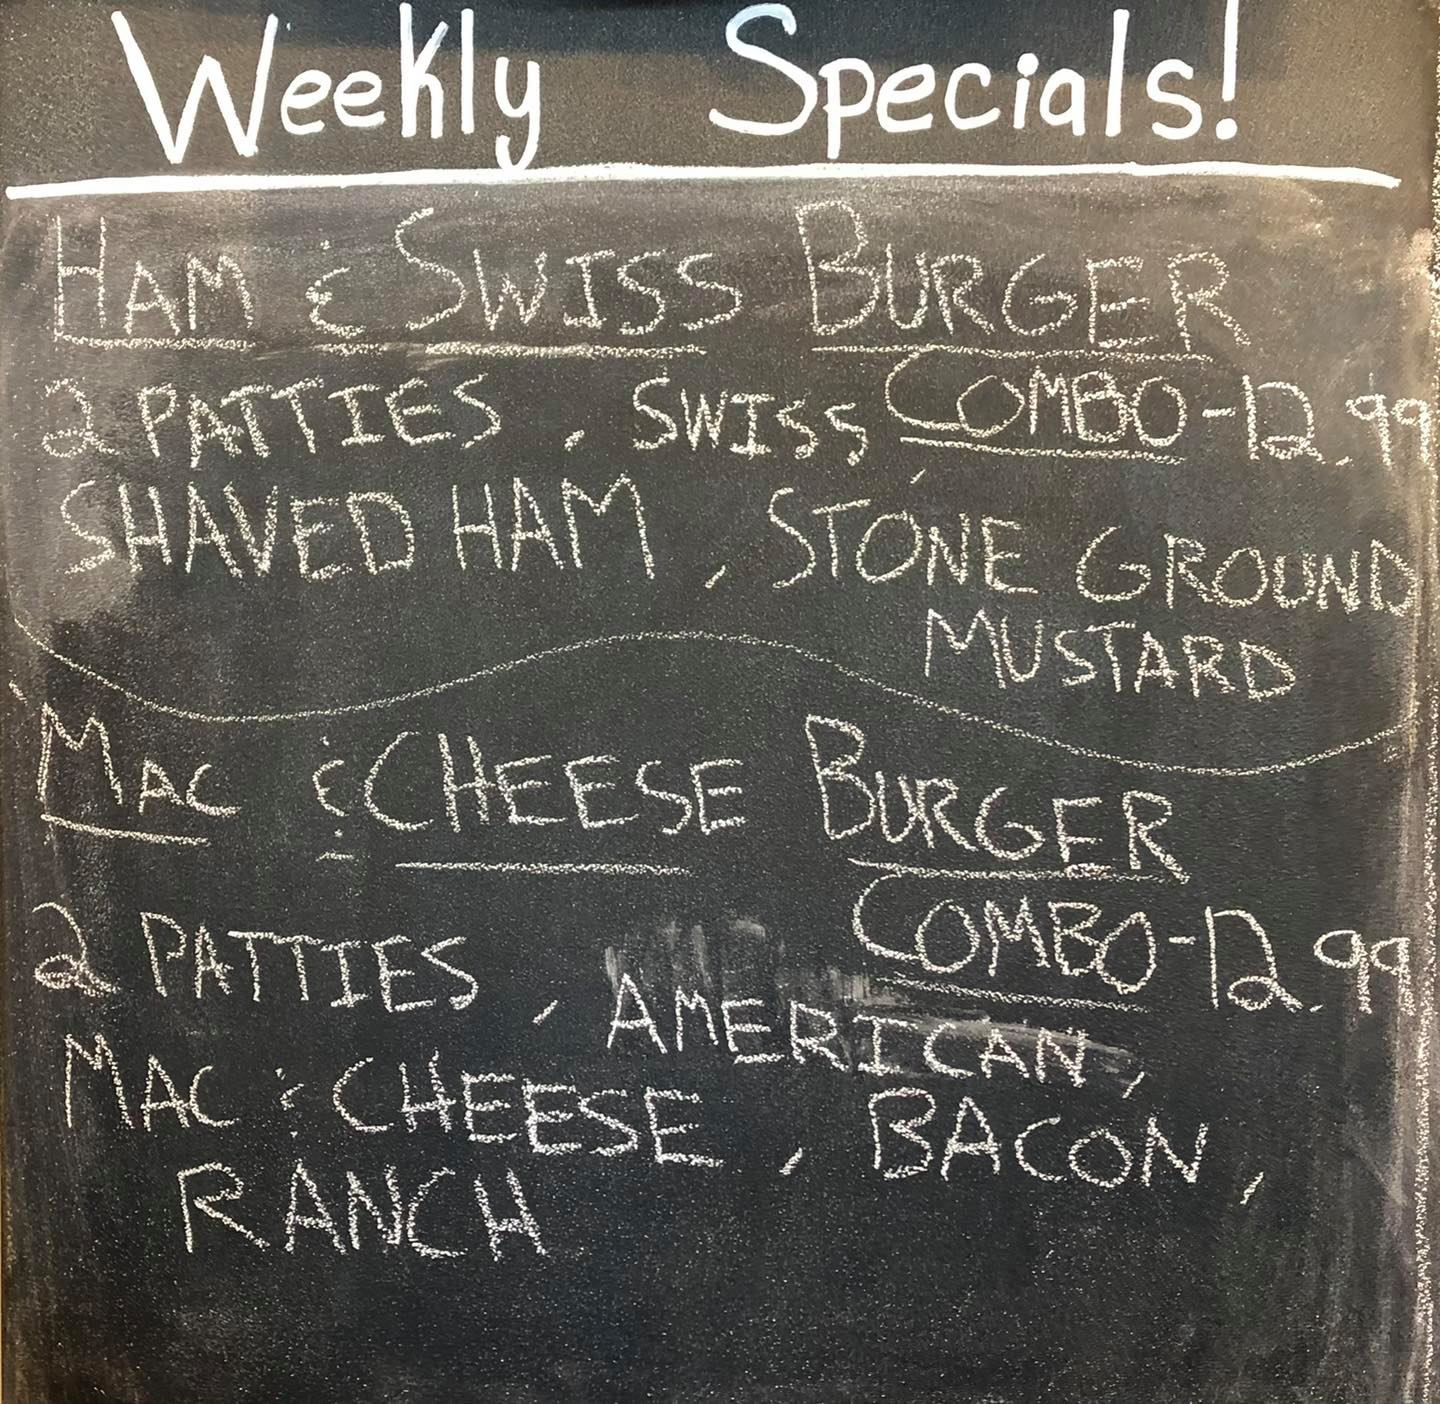 Weekly Specials!
HAM & SWISS BURGER
2 PATTIES, SWISS, COMBO-12.99
SHAVED HAM, STONE GROUND
MUSTARD
MAC & CHEESE BURGER
COMBO-12.99
2 PATTIES, AMERICAN,
MAC & CHEESE, BACON,
RANCH